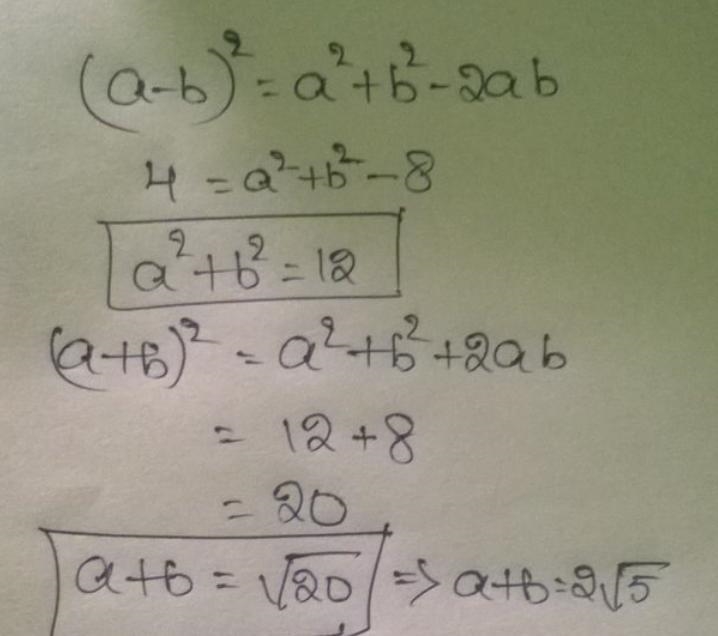 (a-b)² = a²+b²-2ab
4 = a²+b²-8
a²+b² = 12
(a+b)² = a²+b²+2ab
= 12+8
= 20
a+b = √20 => a+b=2√5